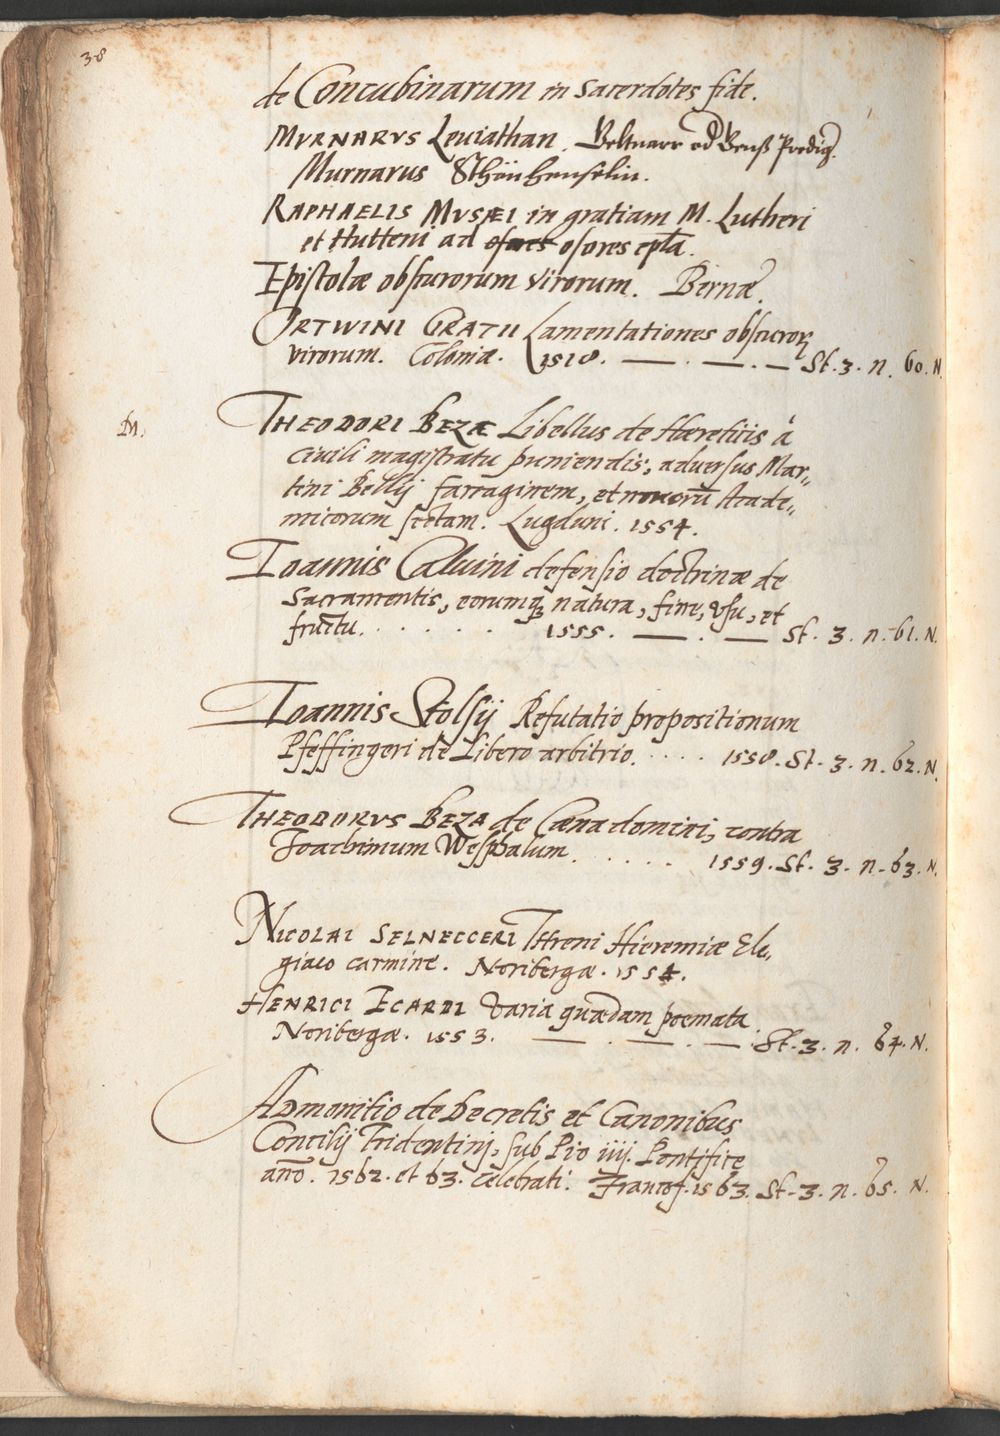 38
de Concubinarum in sacerdotes fide.
MURNARVS Leuiathan. Geltnarr od Genß Predig.
Murnarus Schönhenselin.
RAPHAELIS MVSÆI in gratiam M. Lutheri
et Hutteni ad osores epla.
Epistolæ obscurorum virorum. Bernæ.
ORTWINI GRATII Lamentationes obscuror
virorum. Coloniæ. 1518. — . — . — St. 3. n. 60. N.
M.
THEODORI BEZÆ Libellus de Hæreticis à
ciuili magistratu puniendis, aduersus Mar„
tini Bellij farraginem, et nouorū Acade„
micorum sectam. Lugduni. 1554.
Ioannis Caluini defensio doctrinæ de
Sacramentis, eorumq natura, fine, vsu, et
fructu. . . . . . 1555. — . — St. 3. n. 61. N.
Ioannis Stolsij Refutatio propositionum
Pfeffingeri de Libero arbitrio. . . . . 1558. St. 3. n. 62. N.
THEODORVS BEZA de Cæna domini, contra
Joachimum Wesphalum. . . . . . 1559. St. 3. n. 63. N.
NICOLAI SELNECCERI Threni Hieremiæ Ele„
giaco carmine. Noribergæ. 1554.
HENRICI ECARDI varia quædam poemata.
Noribergæ. 1553. — . — . — . St. 3. n. 64. N.
Admonitio de Decretis et Canonibus
Concilij Tridentinj, sub Pio iiij. Pontifice
anō. 1562. et 63. celebrati. Francof. 1563. St. 3. n. 65. N.